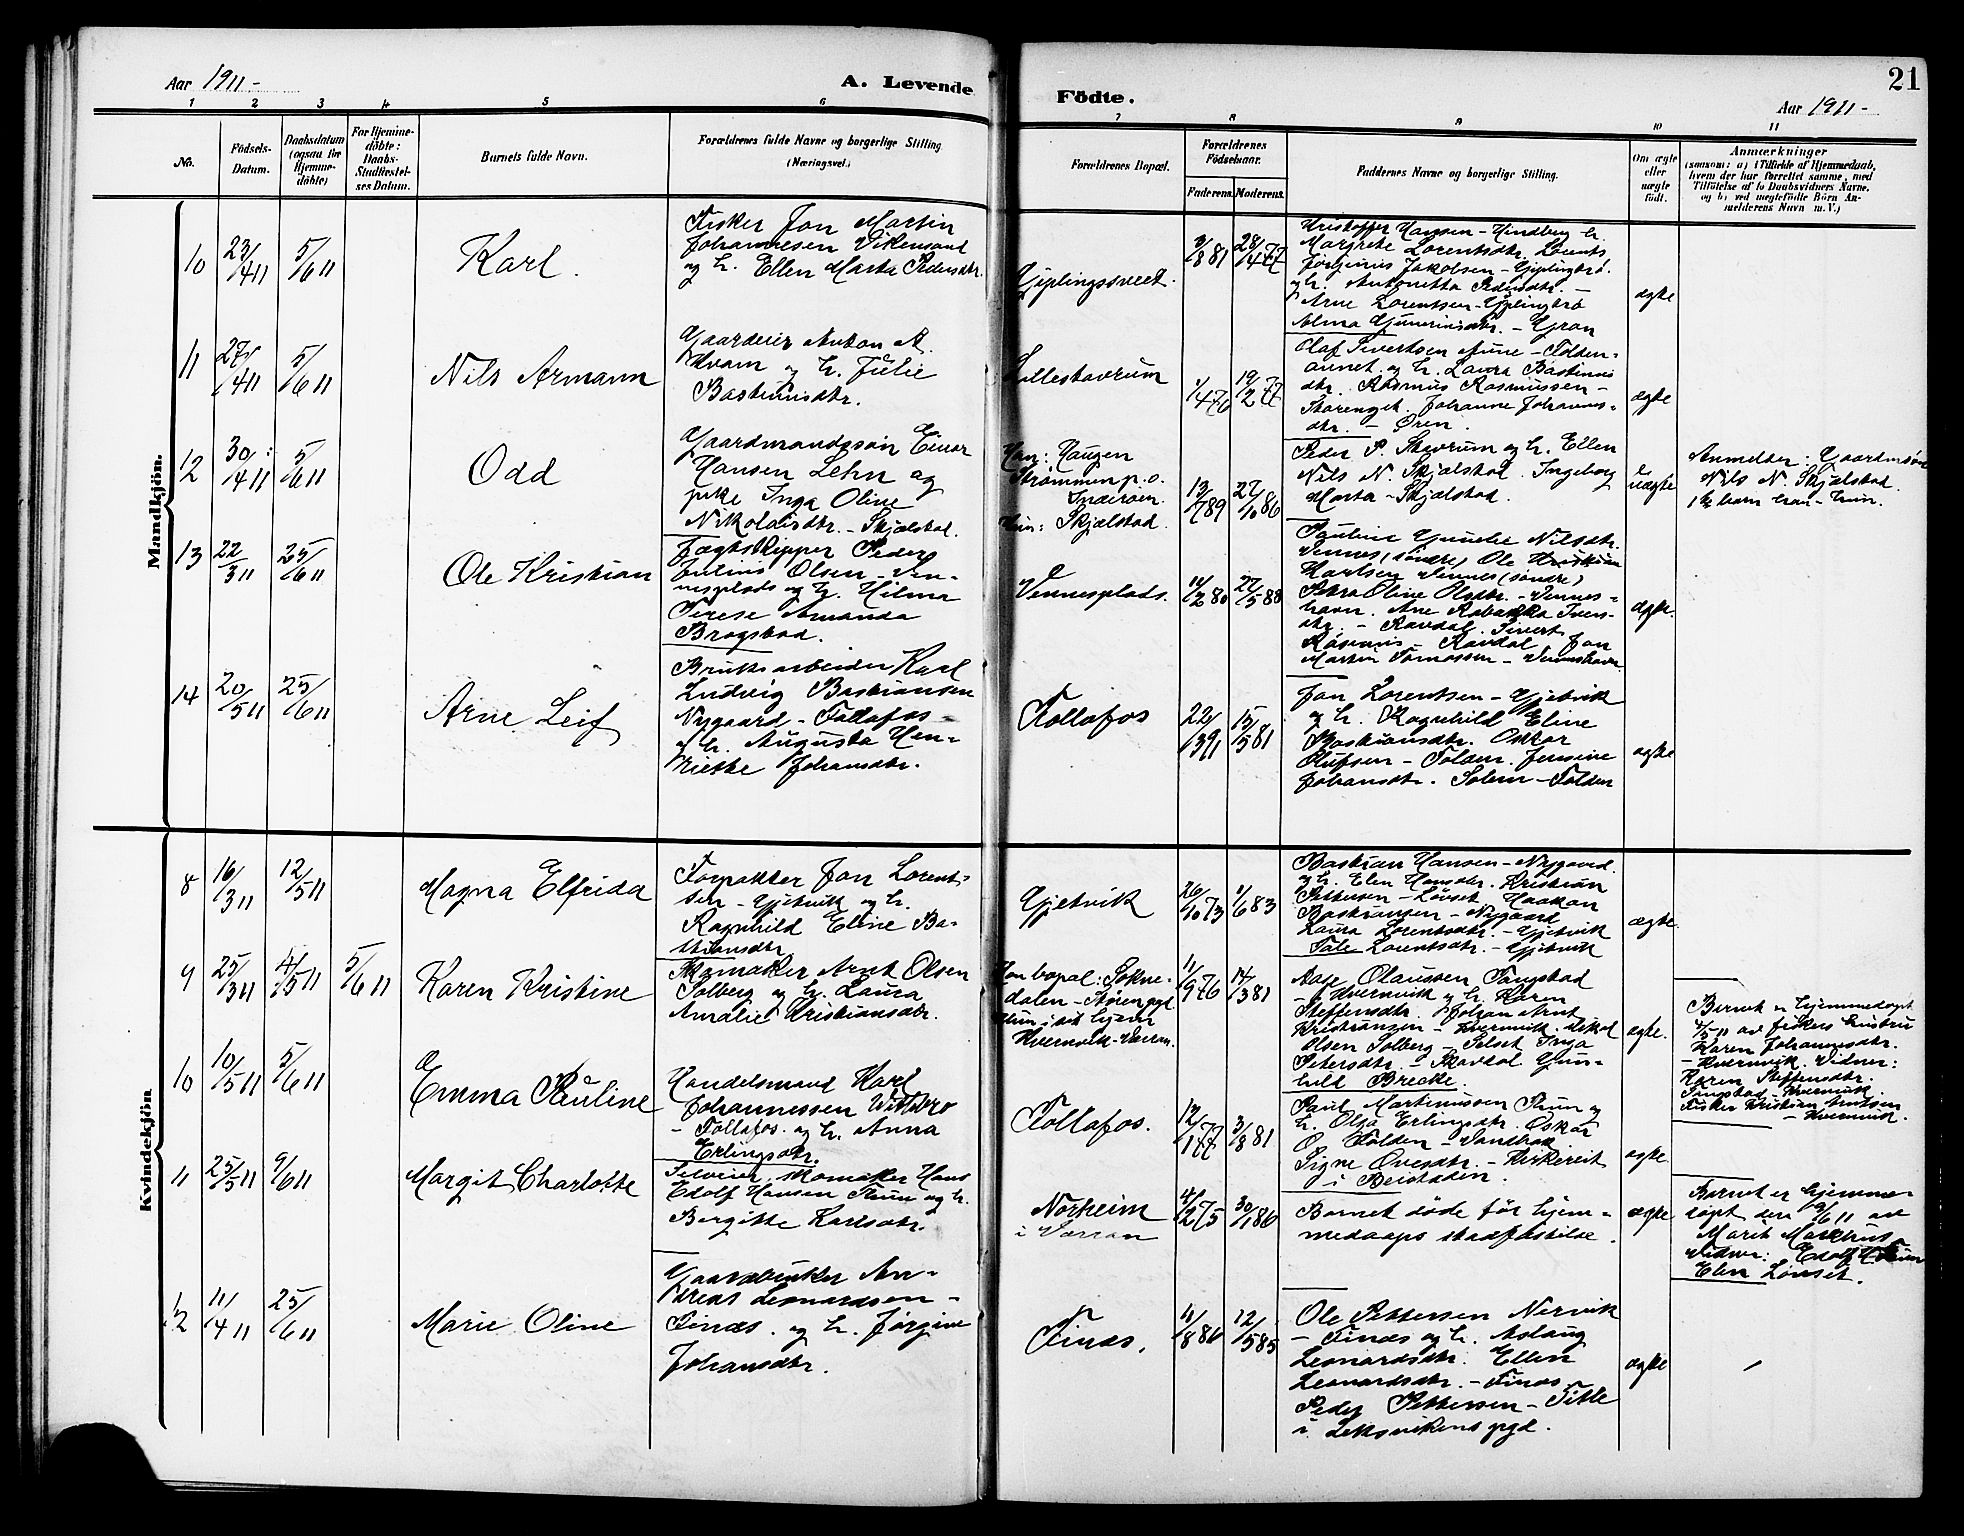 Aar 1911-
A. Levende
Födte.
21
Aar 1911-
1 2 3 4 5 6 7 8 9 10 11
No.
Födsels-
Datum.
Daabsdatum
(ogsaa for
Hjemme-
döbte)
For Hjemme-
döbte:
Daabs-
Stadfæstel-
ses Datum.
Barnets fulde Navn.
Forældrenes fulde Navne og borgerlige Stilling
(Næringsvei.)
Forældrenes Bopæl.
Forældrenes
Födselsaar.
Faderens. Moderens.
Faddernes Navne og borgerlige Stilling.
Om ægte
eller
uægte
født.
Anmærkninger
(saasom: a) i Tilfælde af Hjemmedaab,
hvem der har forrettet samme, med
Tilføielse af to Daabsvidners Navne.
og b) ved uægtefödte Börn An-
melderens Navn m. V.)
Mandkjön.
10
23/4 11
5/6 11
Karl.
Fisker Jon Martin
Johannesen Vikensand
og h. Ellen Marta Pedersdtr.
3/8 81
28/4 77
Kristoffer Hansen - Hindberg h.
Margrete Lorentsdtr. Lorents
Jørginus Jakobsen -
og h. Antonetta Pedersdtr. -
Arne Lorentsen -
Alma - Gran
ægte
11
27/4 11
5/6 11
Nils Armann
Gaardeier Anton A.
Hvam og h. Julie
Bastiansdtr.
Lollestavrum
1/4 76
19/2 77
Olaf Sivertsen Aune - Folden-
aunet. og h. Laura Bastians
dtr. Rasmus Rasmussen -
Johanne Johannes-
dtr. - Ören.
ægte
12
30/4 11
5/6 11
Odd
Gaardmandssøn Einar
Hansen Lehn og
pike Inga Oline
Nikolaisdtr. - Skjælstad.
Han: Haugen
Strømmen p.o.
Inderøen.
Hun: Skjælstad.
13/7 89
27/10 86
Peder P. Stavrum og h. Ellen
Nils N. Skjælstad. Ingeborg
Marta - Skjælstad.
uægte
Anmelder: Gaardm.søn
Nils N. Skjælstad.
1ste barn han - hun.
13
22/3 11
25/6 11
Ole Kristian
Jægtskipper Peder
Julius Olsen - Ven-
nesplads og h. Hilma
Terese Amanda
Bragstad.
Vennesplads.
27/5 88
Pauline Nilsdtr.
Vennes (søndre) Ole Kristian
Karlsen Vennes (søndre)
Petra Oline Olsdtr. - Vennes-
havn. Ane Rabekka Ivers-
dtr. - Ravdal. Sivert
Råsenus - Ravdal Jon
Martin Tomassen - Venneshavn
ægte.
14
20/5 11
25/6 11
Arne Leif
Bruksarbeider Karl
Ludvig Bastiansen
Nygaard - Follafos -
og h. Augusta Hen-
riette Johansdtr.
Follafos
15/5 81
Jon Lorentsen - Gjetvik
og h. Ragnhild Eline
Bastiansdtr. Oskar
Olufsen - Folden. Jensine
Johansdtr. Solem - Folden
ægte
Kvindekjön
8
16/3 11
12/5 11
Magna Elfrida
Forpakter Jon Lorent-
sen - Gjetvik og h.
Ragnhild Eline Ba-
stiansdtr
Gjetvik
26/10 73
1/6 83
Bastian Hansen - Nygaard.
og h. Elen Hansdtr. Kristian
Pettersen - Lovset Haakon
Bastiansen - Nygaard
Laura Lorentsdtr. - Gjetvik
Tale Lorentsdtr. - Gjetvik
ægte
9
25/3 11
4/5 11
5/6 11
Karen Kristine
Skomaker Arnt Olsen
Solberg og h. Laura
Amalie Kristiansdtr.
Han bopæl: Sokne-
dalen - Støren pgd
Hun i sit hjem
Kvernvik - Værran.
11/9 76
14/3 81
Aage Olaussen Tangstad
- Kvernvik og h. Karen
Steffensdtr. Johan Arnt
Kristiansen - Kvernvik.
Olsen Solberg - Selset Inga
Petersdtr. - Ravdal Gun-
hild Brekke.
ægte.
Barnet er hjemmedøpt
4/5 11 av fiskers hustru
Karen Johannesdtr.
- Kvernvik. Vidner:
Karen Steffensdtr.
Tangstad Kvernvik.
Fisker Kristian Arntsen
- Kvernvik.
10
10/5 11
5/6 11
Emma Pauline
Handelsmand Karl
Johannessen
- Follafos. og h. Anna
Erlingsdtr.
Follafos.
12/1 77
3/8 81
Paul Martinussen Thun og
h. Olga Erlingsdtr. Oskar
O. Folden - Vandbak
Signe Ovesdtr. -
i Beistaden.
ægte
11
25/5 11
9/6 11
Margit Charlotte
Selveier, skomaker Hans
Edolf Hansen Thun og h.
Birgitte Karlsdtr.
Norheim
i Værran
4/12 75
30/1 86
Barnet døde før hjem-
medaaps stadfæstelse.
ægte
Barnet er hjemme-
døpt den 9/6 11 av
Marit Markhus
Vidner: Edolf H. Thun
Elen Lovset.
12
11/4 11
25/6 11
Marie Oline
Gaardbruker An-
dreas Leonardsen -
Finæs. og h. Jørgine
Johansdtr.
Finæs.
4/8 86
12/5 85
Ole Pettersen Nervik
- Finæs og h. Aslaug
Leonardsdtr. Ellen
Leonardsdtr. - Finæs
Peder Pettersen - Title
i Leksvikens pgd.
ægte